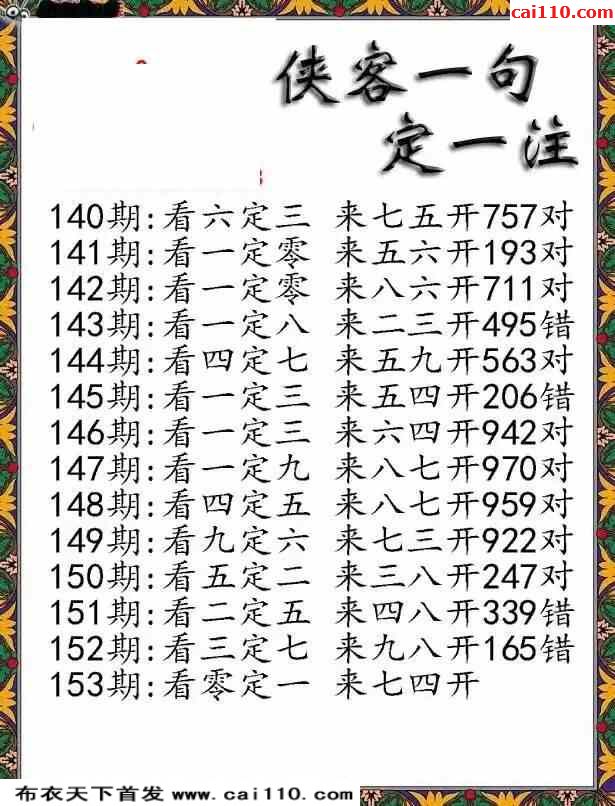 cai110.com
侠客一句
定一注
140期:看六定三 来七五开757对
141期:看一定零 来五六开193对
142期:看一定零 来八六开711对
143期:看一定八 来二三开495错
144期:看四定七 来五九开563对
145期:看一定三 来五四开206错
146期:看一定三 来六四开942对
147期:看一定九 来八七开970对
148期:看四定五 来八七开959对
149期:看九定六 来七三开922对
150期:看五定二 来三八开247对
151期:看二定五 来四八开339错
152期:看三定七 来九八开165错
153期:看零定一 来七四开
布衣天下首发 www.cai110.com